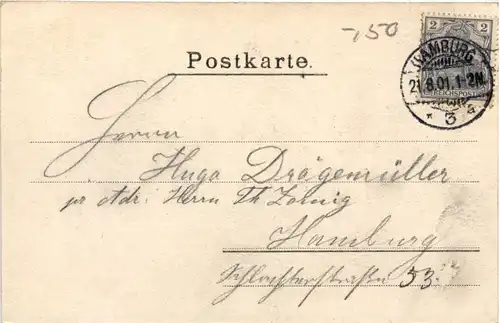 -,50
2 2
HAMBURG
21.8.01.1-2N.
REICHSPOST
* 3 a
Postkarte.
Herrn
Hugo Drägemüller
pr Adr. Herrn Th
Hamburg
Schlachterstraße 53.